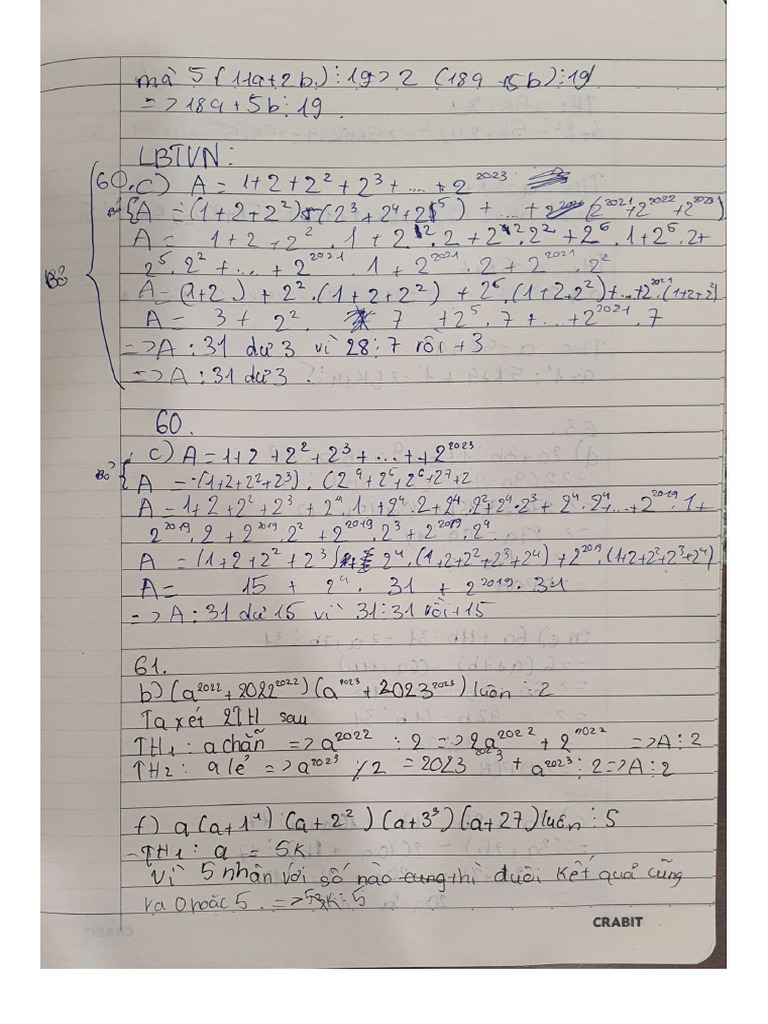 mà 5(11a+2b)⋮19=>2 (18a+5b)⋮19
=>18a+5b⋮19.
LBTVN:
60.c) A = 1+2+2²+2³+...+2²⁰²³
Bỏ {A = (1+2+2²) (2³+2⁴+2⁵) + ...+ (2²⁰²¹+2²⁰²²+2²⁰²³)
A = 1+2+2².1+2².2+2².2²+2⁵.1+2⁵.2+
Bỏ 2⁵.2²+...+2²⁰²¹.1+2²⁰²¹.2+2²⁰²¹.2²
A=(1+2)+2².(1+2+2²)+2⁵.(1+2+2²)+...+2²⁰²¹.(1+2+2²)
A = 3+ 2². 7 +2⁵.7+...+2²⁰²¹.7
=>A:31 dư 3 vì 28:7 rồi+3
=>A:31 dư 3.
60.
c) A=1+2+2²+2³+...+2²⁰²³
Bỏ { A =(1+2+2²+2³).(2⁴+2⁵+2⁶+2⁷+2
A=1+2+2²+2³+2⁴.1+2⁴.2+2⁴.2²+2⁴.2³+2⁴.2⁴...+2²⁰¹⁹.1+
2²⁰¹⁹.2+2²⁰¹⁹.2²+2²⁰¹⁹.2³+2²⁰¹⁹.2⁴.
A =(1+2+2²+2³)+2⁴.(1+2+2²+2³+2⁴)+2²⁰¹⁹.(1+2+2²+2³+2⁴)
A= 15 + 2⁴. 31 + 2²⁰¹⁹.31
=>A:31 dư 15 vì 31:31 rồi+15
61.
b)(a²⁰²²+2022²⁰²²)(a²⁰²³+2023²⁰²³)luôn⋮2
Ta xét 2TH sau
TH₁: a chẵn =>a²⁰²²⋮2=>2a²⁰²²+2²⁰²² =>A⋮2
TH₂: a lẻ =>a²⁰²³ ⋮̸2 =2023²⁰²³+a²⁰²³⋮2=>A⋮2
f) a(a+1¹)(a+2²)(a+3³)(a+27)luôn⋮5
-TH₁: a = 5K.
Vì 5 nhân với số nào cung thì đuôi kết quả cũng
ra 0 hoặc 5. =>5K⋮5
CRABIT